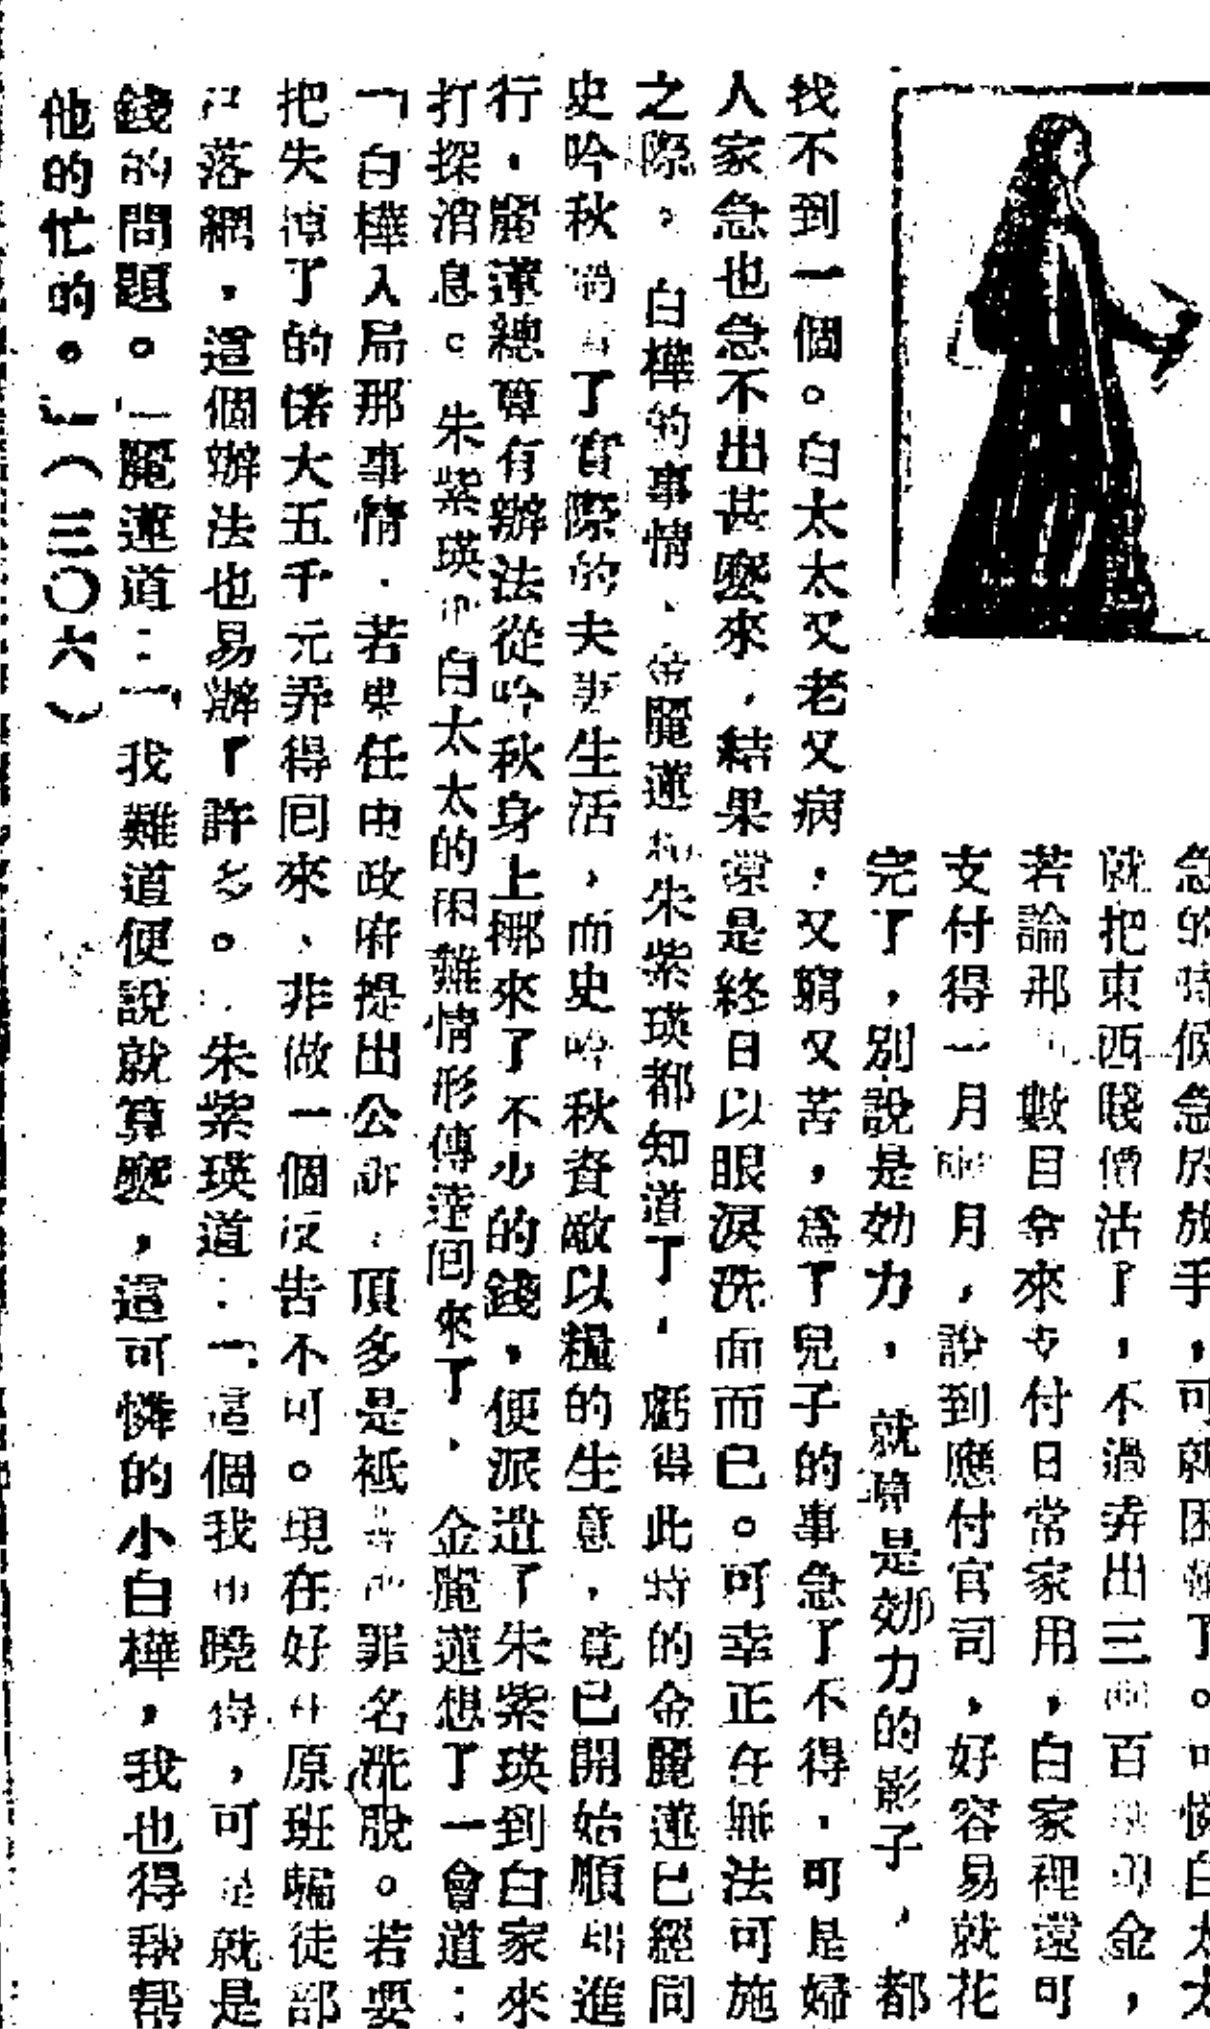 急的時候急於放手，可就困難了。可憐白太太
就把東西賤價沽了，不過弄出三四百現金，
若論那數目令來支付日常家用，白家裡還可
支付得一月兩月，說到應付官司，好容易就花
完了，別說是効力，就算是効力的影子，都
找不到一個。白太太又老又病，又窮又苦，為了兒子的事急了不得，可是婦
人家急也急不出甚麼來，結果還是終日以眼淚洗面而已。可幸正在無法可施
之際。白樺的事情、金麗蓮和朱紫瑛都知道了，虧得此時的金麗蓮已經同
史吟秋過着了實際的夫妻生活，而史吟秋資敵以糧的生意，竟已開始順利進
行，麗蓮總算有辦法從吟秋身上挪來了不少的錢，便派遣了朱紫瑛到白家來
打探消息。朱紫瑛把白太太的困難情形傳達回來了，金麗蓮想了一會道：
「白樺入局那事情，若果任由政府提出公訴，頂多是祗罪名洗脫。若要
把失掉了的偌大五千元弄得回來、非做一個反告不可。現在好在原班騙徒部
已落網，這個辦法也易辦了許多。」朱紫瑛道：「這個我也曉得，可是就是
錢的問題。」麗蓮道：「我難道便說就算麼，這可憐的小白樺，我也得幫幫
他的忙的。」（三〇六）